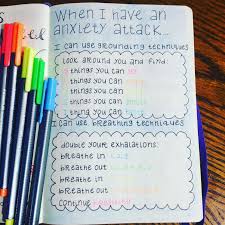 When I have an
anxiety attack...
I can use grounding techniques
look around you and find:
things you can
things you can
things you can
things you can
I can use breathing techniques
double your exhalations:
breathe in
breathe out
breathe in
breathe out
continue